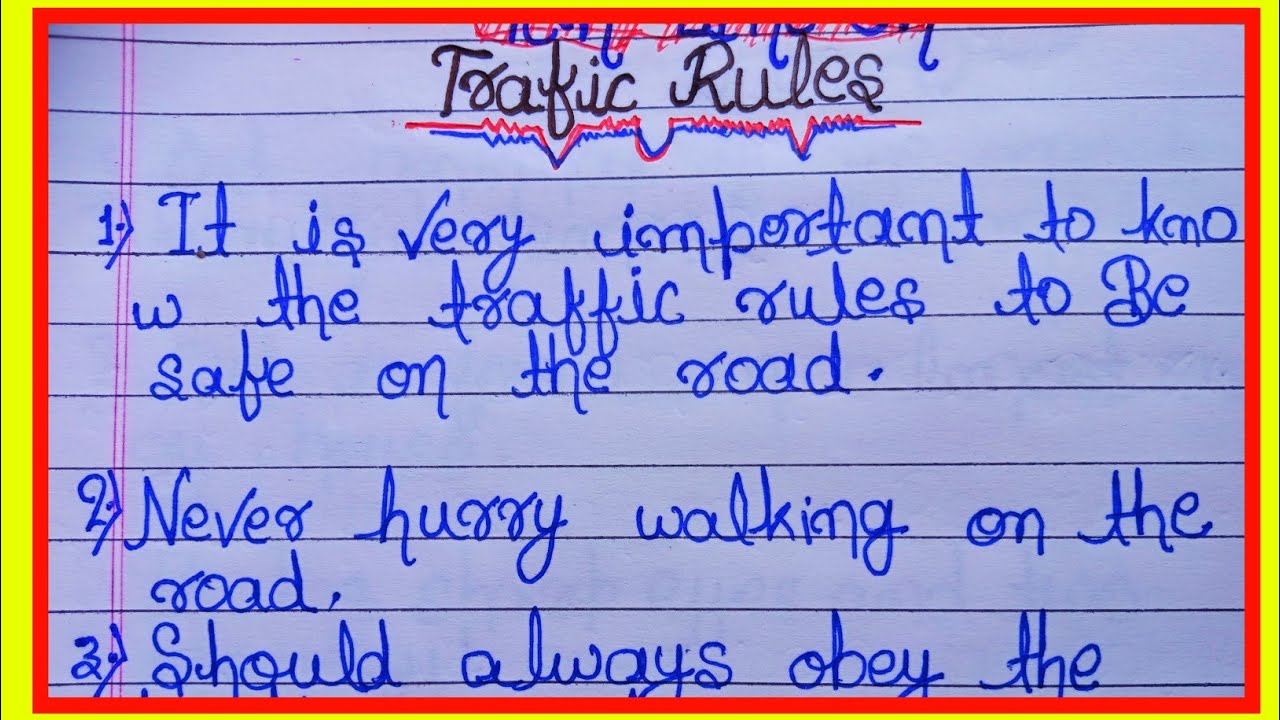 Trafic Rules
1.) It is very important to kno
w the traffic rules to Be
safe on the road.
2.) Never hurry walking on the
road.
3.) Should always obey the